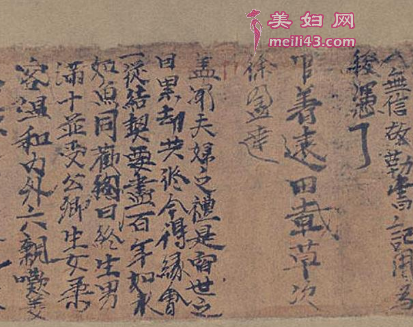 美妇网
meili43.com
無信故勒書記用為
後憑了
善遠田載草次
盖聞夫婦之禮是宿世之
因累劫共修今得緣會
一從結契要盡百年如水
如魚同歡終日生男
滿十並受公卿生女柔
容温和内外六親歎美